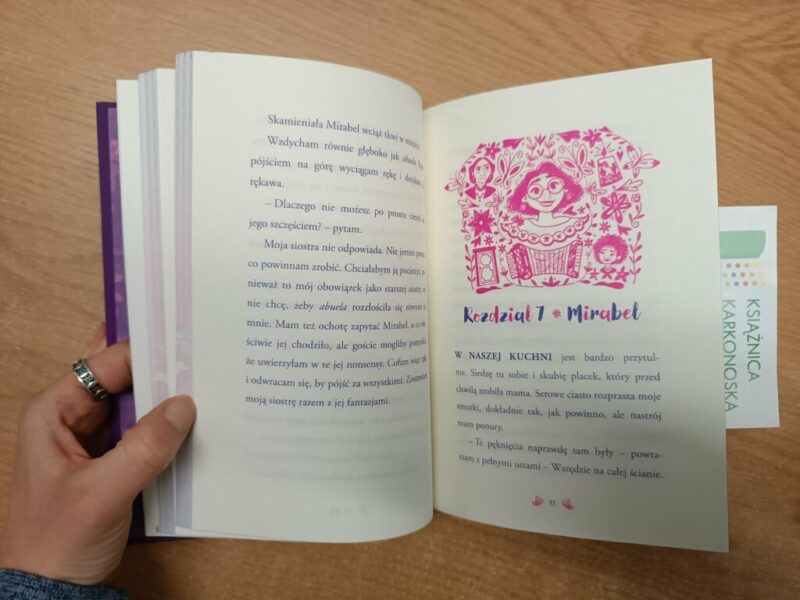 Skamieniała Mirabel wciąż tkwi w miejscu.
Wzdycham równie głęboko jak abuela.
pójściem na górę wyciągam rękę i dotykam
rękawa.
– Dlaczego nie możesz po prostu cieszyć
jego szczęściem? – pytam.
Moja siostra nie odpowiada. Nie jestem
co powinnam zrobić. Chciałabym ją pocieszyć,
nieważ to mój obowiązek jako starszej siostry,
nie chcę, żeby abuela rozzłościła się również
mnie. Mam też ochotę zapytać Mirabel, o co
ściwie jej chodziło, ale goście mogliby pomyśleć,
że uwierzyłam w te jej nonsensy. Cofam więc
i odwracam się, by pójść za wszystkimi. Zostawiam
moją siostrę razem z jej fantazjami.
Rozdział 7 * Mirabel
W NASZEJ KUCHNI jest bardzo przytul-
nie. Siedzę tu sobie i skubię placek, który przed
chwilą zrobiła mama. Serowe ciasto rozprasza moje
smutki, dokładnie tak, jak powinno, ale nastrój
mam ponury.
– Te pęknięcia naprawdę tam były – powta-
rzam z pełnymi ustami – Wszędzie na całej ścianie.
91
KSIĄŻNICA
KARKONOSKA